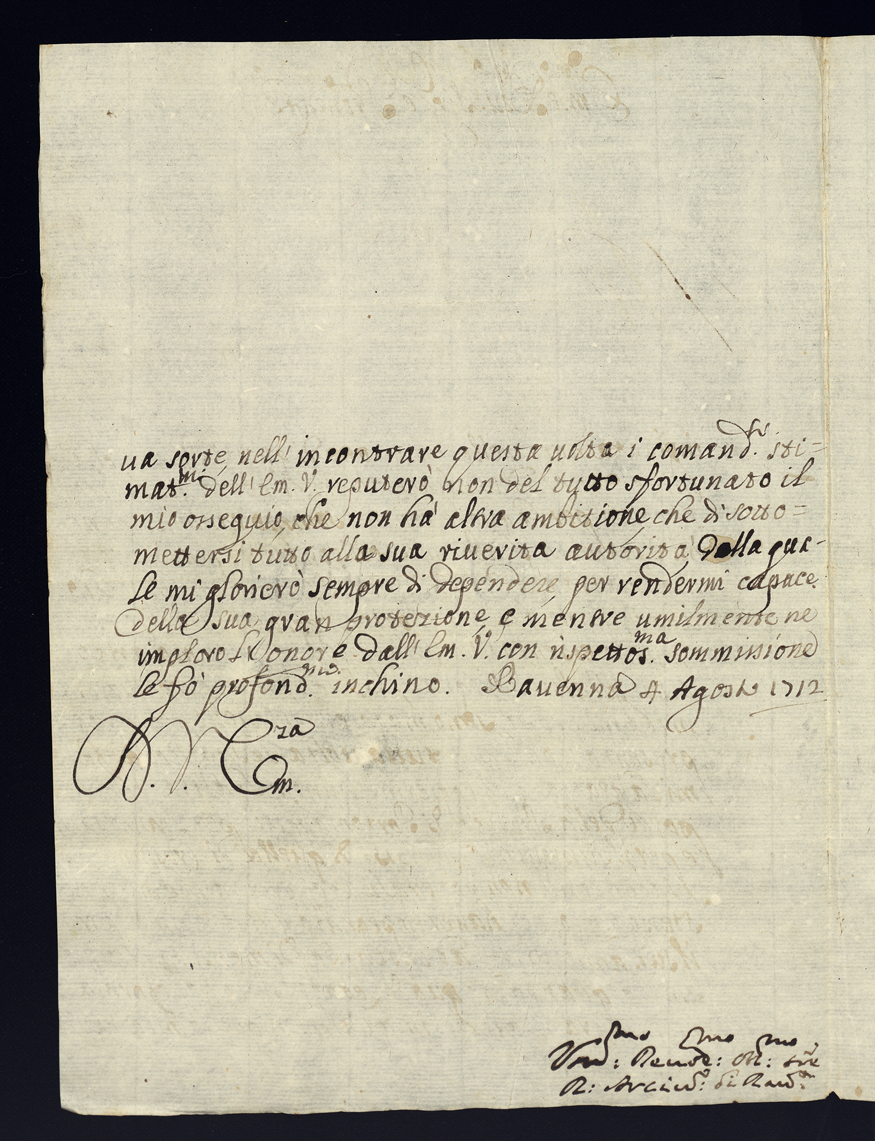 ua sorte, nell' incontrare questa uolta i comand.ti sti=
mat.mi dell' Em. V. reputerò non del tutto sfortunato il
mio ossequio, che non hà altra ambittione, che di sotto=
mettersi tutto alla sua riuerita autorità, dalla qua=
le mi glorierò sempre di dependere, per rendermi capace
della sua gran protezione, e mentre umilmente ne
imploro l'onore dall' Em. V. con rispettos.ma sommisione
le fò profond.mo inchino. Rauenna 4 Agosto 1712
D. V. Em.za
Um.mo Deu.mo Obl.mo
R: Arciu.o di Rau.a